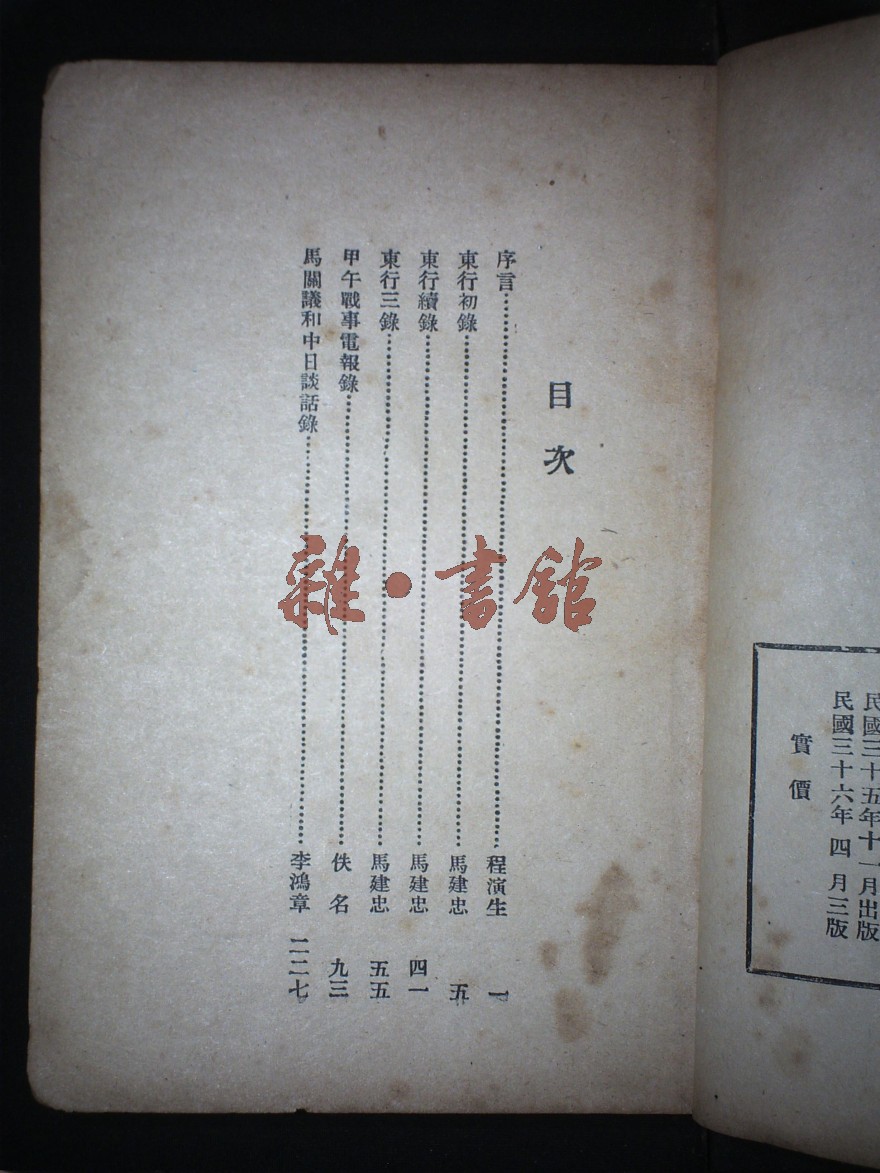 民國三十五年十一月出版
民國三十六年四月三版
實價
目次
序言……程演生 一
東行初錄……馬建忠 五
東行續錄……馬建忠 四一
東行三錄……馬建忠 五五
甲午戰事電報錄……佚名 九三
馬關議和中日談話錄……李鴻章 二二七
雜·書館